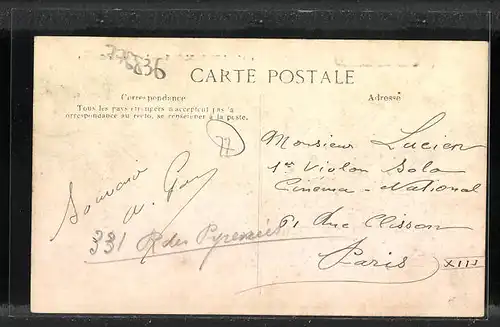 CARTE POSTALE
Correspondance
Tous les pays étrangers n'acceptent pas la
correspondance au recto, se renseigner à la poste.
Adresse
77
Souvenir
331 R des Pyrenées
Monsieur Lucien
1er Violon Solo
Cinéma-National
61 Rue Clisson
Paris XIII